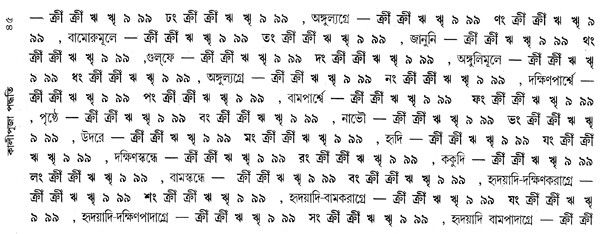 — ক্রীঁ ক্রীঁ ঋ ৠ ৯ ৯৯ ঢং ক্রীঁ ক্রীঁ ঋ ৠ ৯ ৯৯ , অঙ্গুল্যগ্রে — ক্রীঁ ক্রীঁ ঋ ৠ ৯ ৯৯ ণং ক্রীঁ ক্রীঁ ঋ ৠ ৯
৯৯ , বামোরুমূলে — ক্রীঁ ক্রীঁ ঋ ৠ ৯ ৯৯ তং ক্রীঁ ক্রীঁ ঋ ৠ ৯ ৯৯ , জানুনি — ক্রীঁ ক্রীঁ ঋ ৠ ৯ ৯৯ থং
ক্রীঁ ক্রীঁ ঋ ৠ ৯ ৯৯ ,গুল্‌ফে — ক্রীঁ ক্রীঁ ঋ ৠ ৯ ৯৯ দং ক্রীঁ ক্রীঁ ঋ ৠ ৯ ৯৯ , অঙ্গুলিমূলে — ক্রীঁ ক্রীঁ ঋ ৠ
৯ ৯৯ ধং ক্রীঁ ক্রীঁ ঋ ৠ ৯ ৯৯ , অঙ্গুল্যগ্রে — ক্রীঁ ক্রীঁ ঋ ৠ ৯ ৯৯ নং ক্রীঁ ক্রীঁ ঋ ৠ ৯ ৯৯ , দক্ষিণপার্শ্বে —
ক্রীঁ ক্রীঁ ঋ ৠ ৯ ৯৯ পং ক্রীঁ ক্রীঁ ঋ ৠ ৯ ৯৯ , বামপার্শ্বে — ক্রীঁ ক্রীঁ ঋ ৠ ৯ ৯৯ ফং ক্রীঁ ক্রীঁ ঋ ৠ ৯ ৯৯
, পৃষ্ঠে — ক্রীঁ ক্রীঁ ঋ ৠ ৯ ৯৯ বং ক্রীঁ ক্রীঁ ঋ ৠ ৯ ৯৯ , নাভৌ — ক্রীঁ ক্রীঁ ঋ ৠ ৯ ৯৯ ভং ক্রীঁ ক্রীঁ ঋ ৠ
৯ ৯৯ , উদরে — ক্রীঁ ক্রীঁ ঋ ৠ ৯ ৯৯ মং ক্রীঁ ক্রীঁ ঋ ৠ ৯ ৯৯ , হৃদি — ক্রীঁ ক্রীঁ ঋ ৠ ৯ ৯৯ যং ক্রীঁ ক্রীঁ
ঋ ৠ ৯ ৯৯ , দক্ষিণস্কন্ধে — ক্রীঁ ক্রীঁ ঋ ৠ ৯ ৯৯ রং ক্রীঁ ক্রীঁ ঋ ৠ ৯ ৯৯ , ককুদি — ক্রীঁ ক্রীঁ ঋ ৠ ৯ ৯৯
লং ক্রীঁ ক্রীঁ ঋ ৠ ৯ ৯৯ , বামস্কন্ধে — ক্রীঁ ক্রীঁ ঋ ৠ ৯ ৯৯ বং ক্রীঁ ক্রীঁ ঋ ৠ ৯ ৯৯ , হৃদয়াদি-দক্ষিণকরাগ্রে —
ক্রীঁ ক্রীঁ ঋ ৠ ৯ ৯৯ শং ক্রীঁ ক্রীঁ ঋ ৠ ৯ ৯৯ , হৃদয়াদি-বামকরাগ্রে — ক্রীঁ ক্রীঁ ঋ ৠ ৯ ৯৯ ষং ক্রীঁ ক্রীঁ ঋ ৠ
৯ ৯৯ , হৃদয়াদি-দক্ষিণপাদাগ্রে — ক্রীঁ ক্রীঁ ঋ ৠ ৯ ৯৯ সং ক্রীঁ ক্রীঁ ঋ ৠ ৯ ৯৯ , হৃদয়াদি বামপাদাগ্রে — ক্রীঁ ক্রীঁ
কালীপূজা পদ্ধতি
৪৫